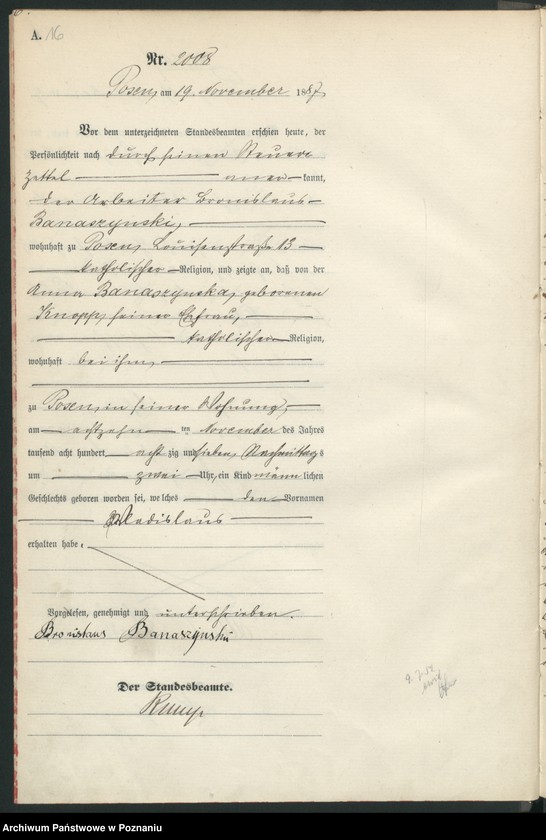 A. 16
Nr. 2008
Posen, am 19. November 1887
Vor dem unterzeichneten Standesbeamten erschien heute, der
Persönlichkeit nach durch seinen Steuer-
zettel aner kannt,
der Arbeiter Bronislaus
Banaszynski,
wohnhaft zu Posen, Louisenstraße 13
katholischer Religion, und zeigte an, daß von der
Anna Banaszynska, geborenen
Knopp, seiner Ehefrau,
katholischer Religion,
wohnhaft bei ihm,
zu Posen, in seiner Wohnung,
am achtzehn ten November des Jahres
tausend acht hundert acht zig und sieben, Nachmittags
um zwei Uhr, ein Kind männ lichen
Geschlechts geboren worden sei, welches den Vornamen
Wladislaus
erhalten habe.
Vorgelesen, genehmigt und unterschrieben.
Bronislaus Banaszynski
Der Standesbeamte.
Archiwum Państwowe w Poznaniu